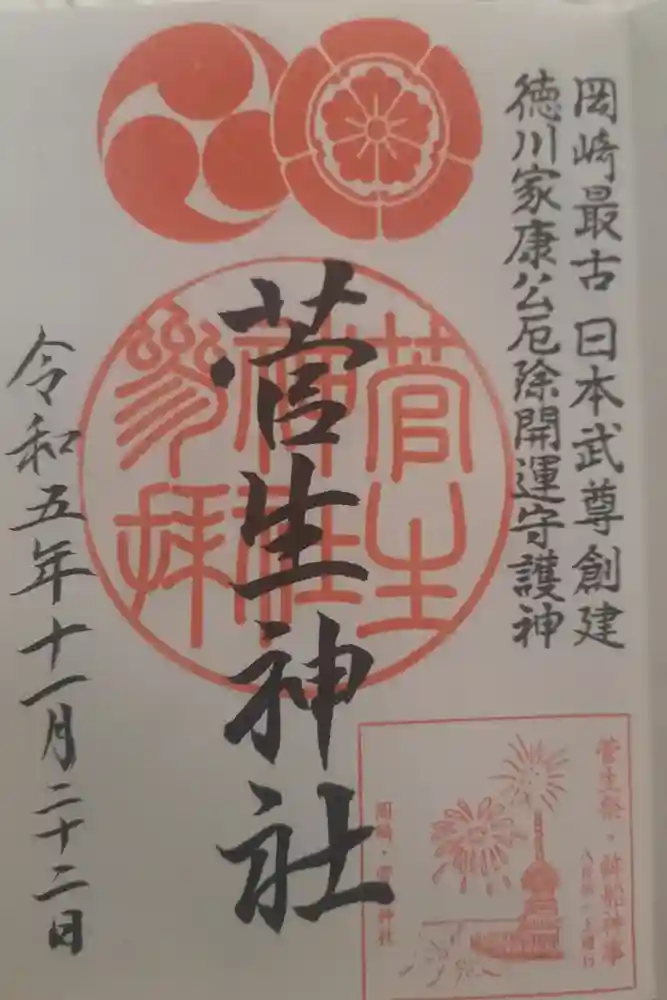 岡崎最古 日本武尊創建
徳川家康公厄除開運守護神
菅生神社
菅生神社参拝
令和五年十一月二十二日
菅生祭・鉾船神事
岡崎・菅生神社